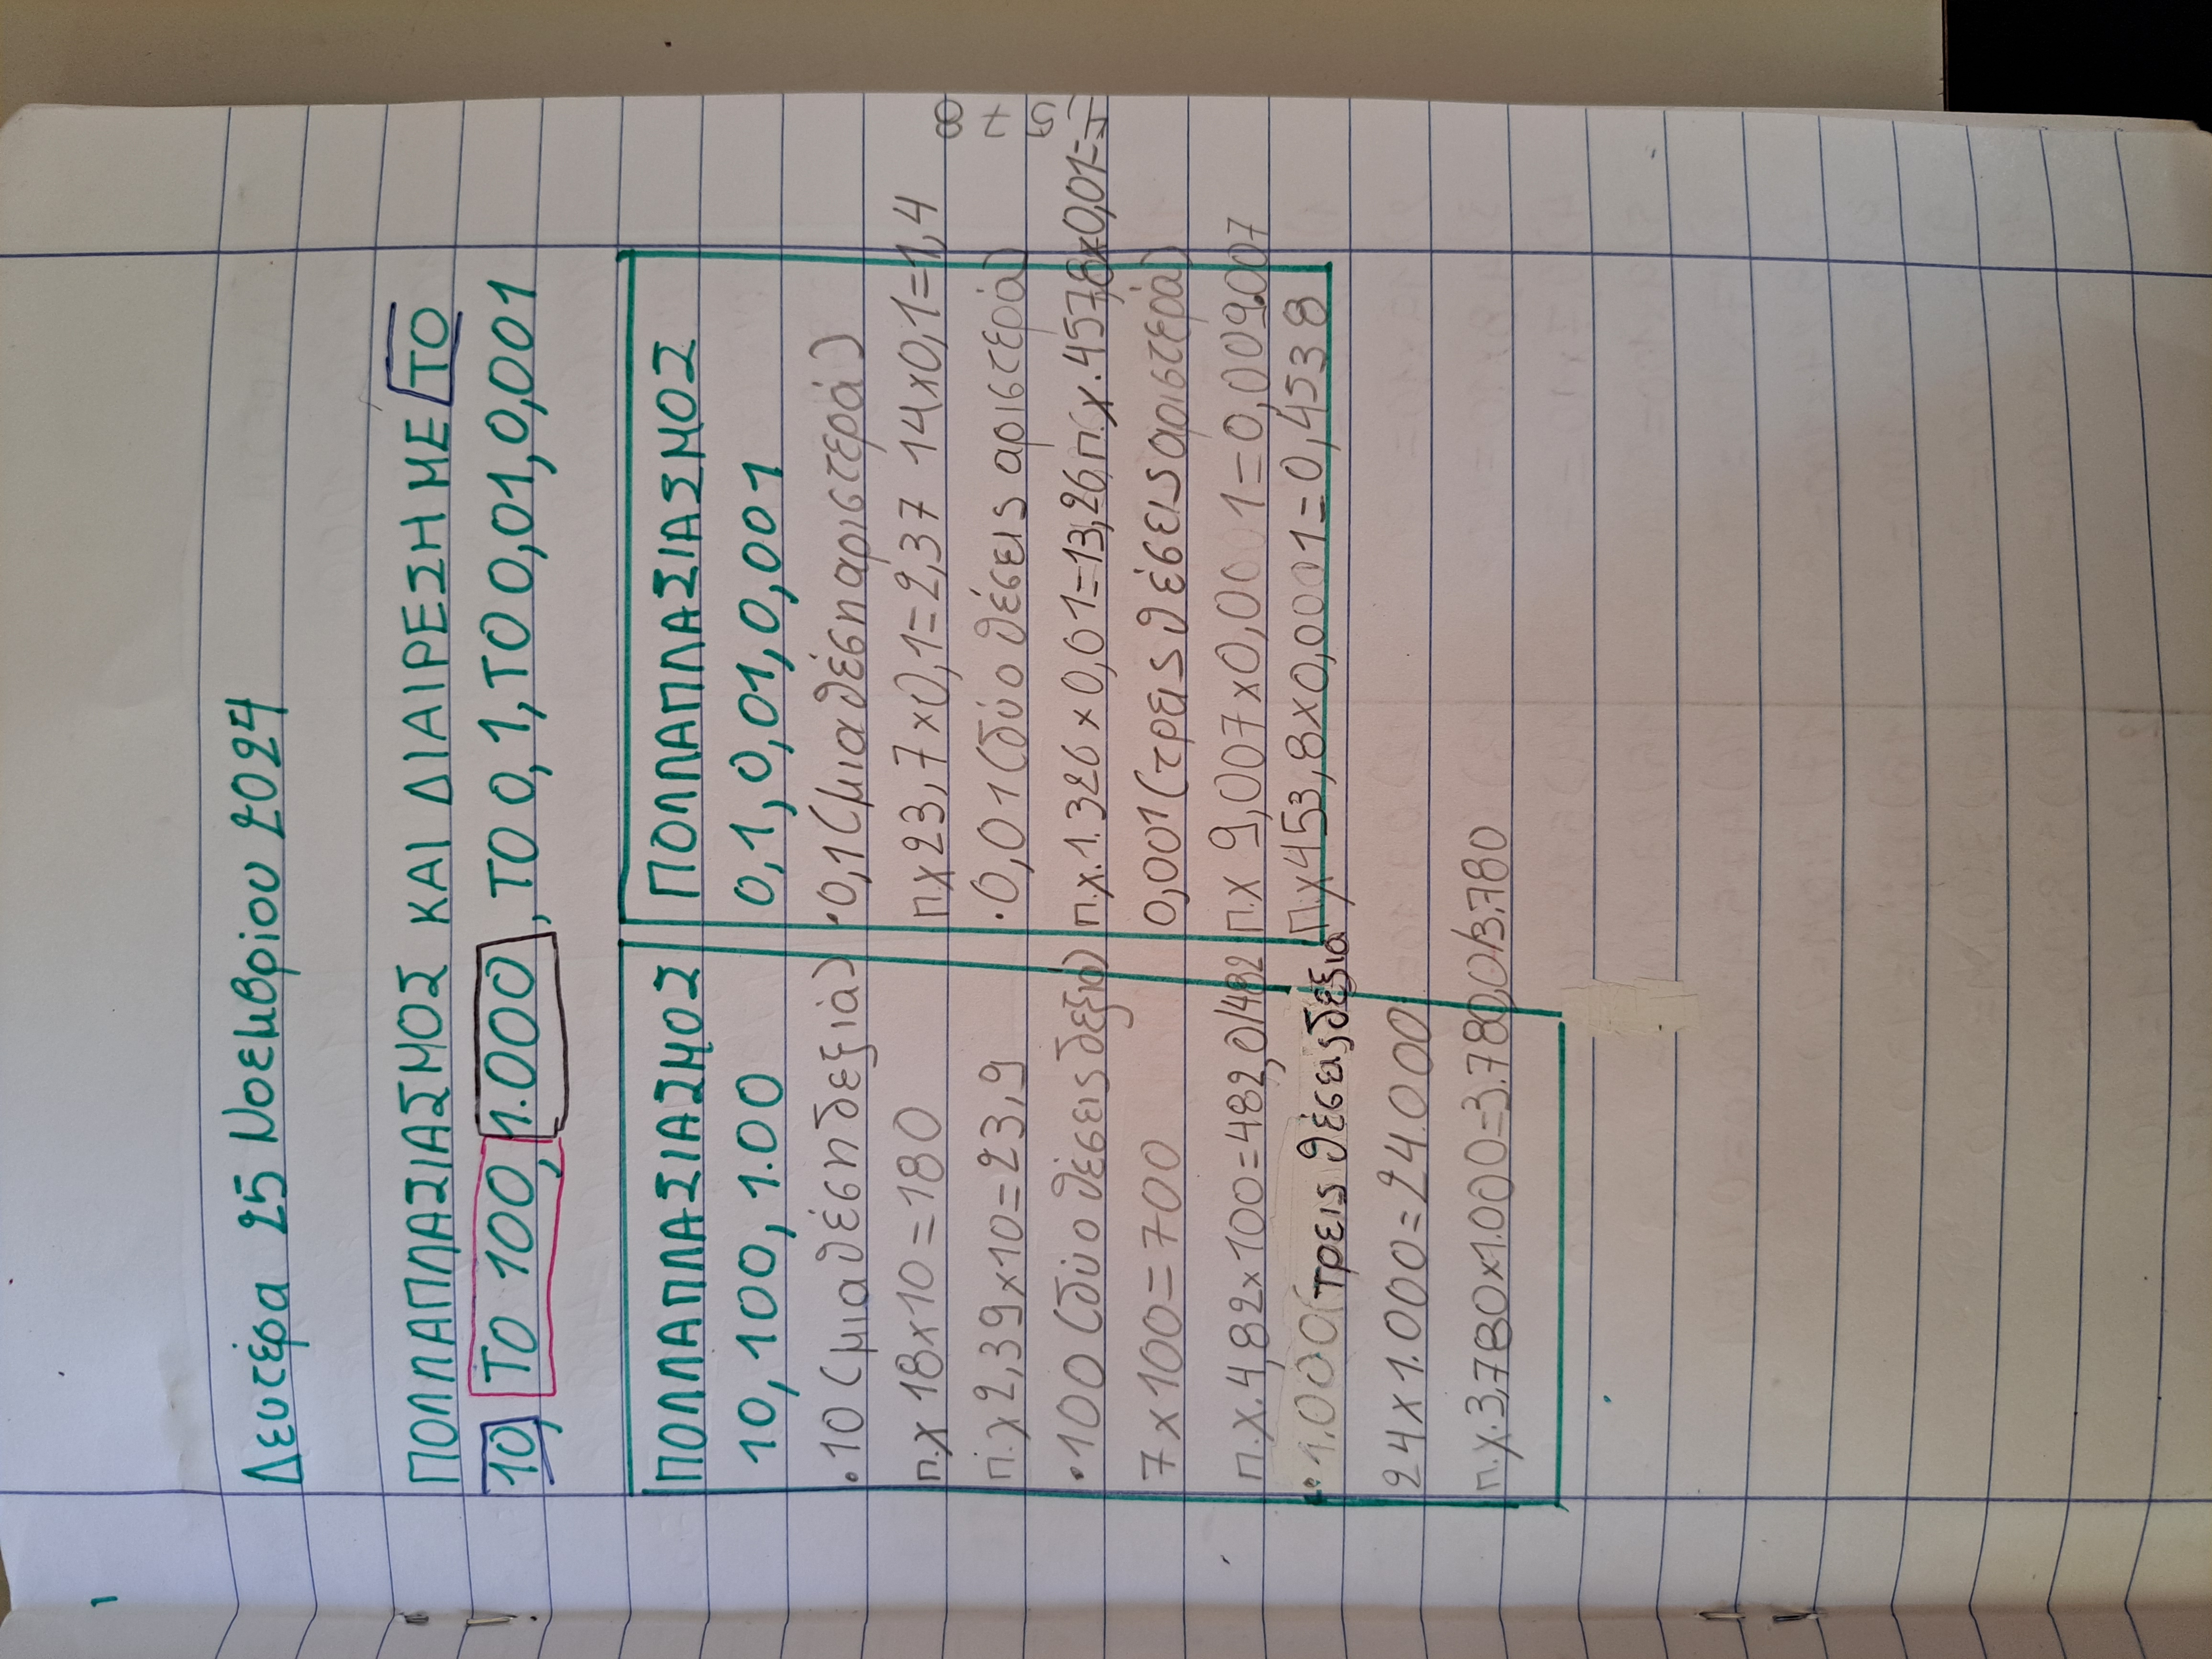 Δευτέρα 25 Νοεμβρίου 2024
ΠΟΛΛΑΠΛΑΣΙΑΣΜΟΣ ΚΑΙ ΔΙΑΙΡΕΣΗ ΜΕ ΤΟ
10, ΤΟ 100, 1.000, ΤΟ 0,1, ΤΟ 0,01, 0,001
ΠΟΛΛΑΠΛΑΣΙΑΣΜΟΣ
10, 100, 1.00
·10 (μια θέση δεξιά)
π.χ 18×10=180
π.χ 2,39×10=23,9
·100 (δύο θέσεις δεξιά)
7×100=700
π.χ. 4,82×100=482,0/482
·1.000 (τρεις θέσεις δεξιά
24×1.000=24.000
π.χ. 3,780×1.000=3.780,0/3.780
ΠΟΛΛΑΠΛΑΣΙΑΣΜΟΣ
0,1, 0,01, 0,001
·0,1 (μια θέση αριστερά)
π.χ 23,7×0,1=2,37 14×0,1=1,4
·0,01 (δύο θέσεις αριστερά)
π.χ. 1.326×0,01=13,26 π.χ. 457,8×0,01=4,578
0,001 (τρεις θέσεις αριστερά)
π.χ 9,007×0,001=0,009.007
π.χ 453,8×0,001=0,4538